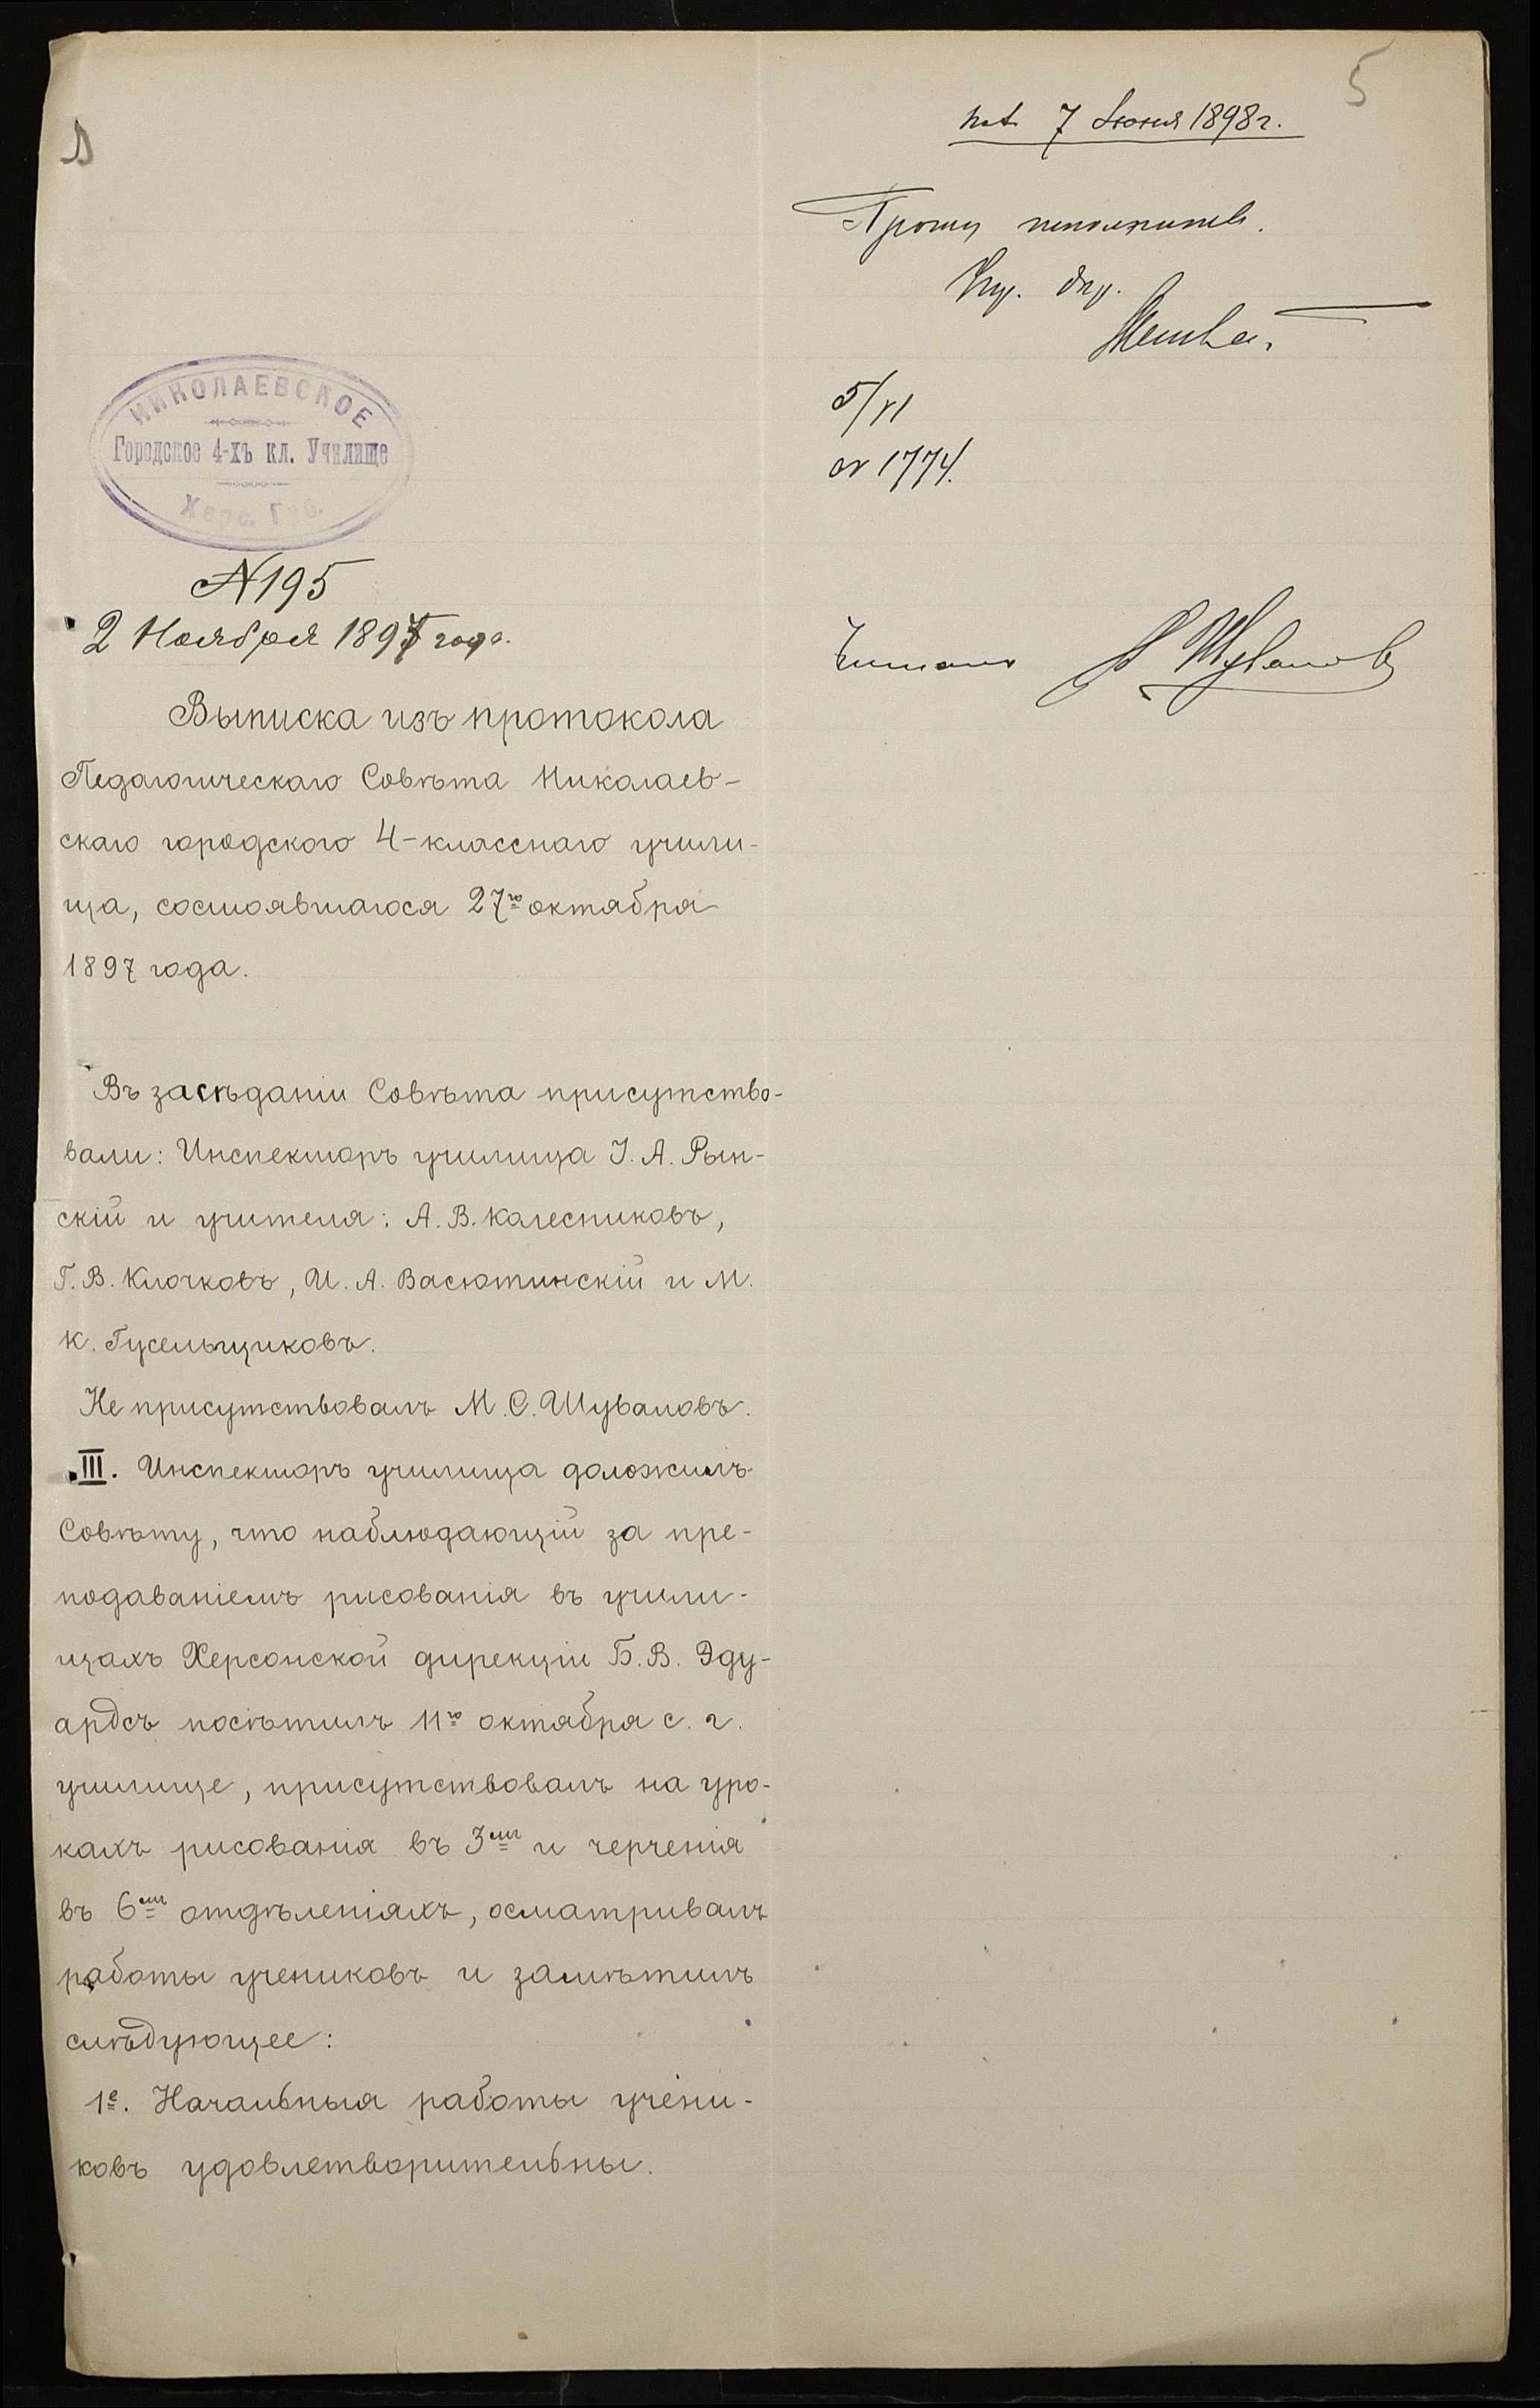 5
7 Июня 1898 г.
Прошу
5/VI
1774.
Читалъ Шуваловъ
НИКОЛАЕВСКОЕ
Городское 4-хъ кл. Училище
Херс. Губ.
№195
2 Ноября 1897 года.
Выписка изъ протокола
Педагогическаго Совѣта Николаев-
скаго городского 4-класснаго учили-
ща, состоявшагося 27го октября
1897 года.
Въ засѣданіи Совѣта присутство-
вали: Инспекторъ училища І. А. Рын-
скій и учителя: А. В. Колесниковъ,
Г. В. Клочковъ, И. А. Васютинскій и М.
К. Гусельщиковъ.
Не присутствовалъ М. С. Шуваловъ.
III. Инспекторъ училища доложилъ
Совѣту, что наблюдающій за пре-
подаваніемъ рисованія въ учили-
щахъ Херсонской дирекціи Б. В. Эду-
ардсъ посѣтилъ 11го октября с. г.
училище, присутствовалъ на уро-
кахъ рисованія въ 3мъ и черченія
въ 6мъ отдѣленіяхъ, осматривалъ
работы учениковъ и замѣтилъ
слѣдующее:
1е. Начальныя работы учени-
ковъ удовлетворительны.